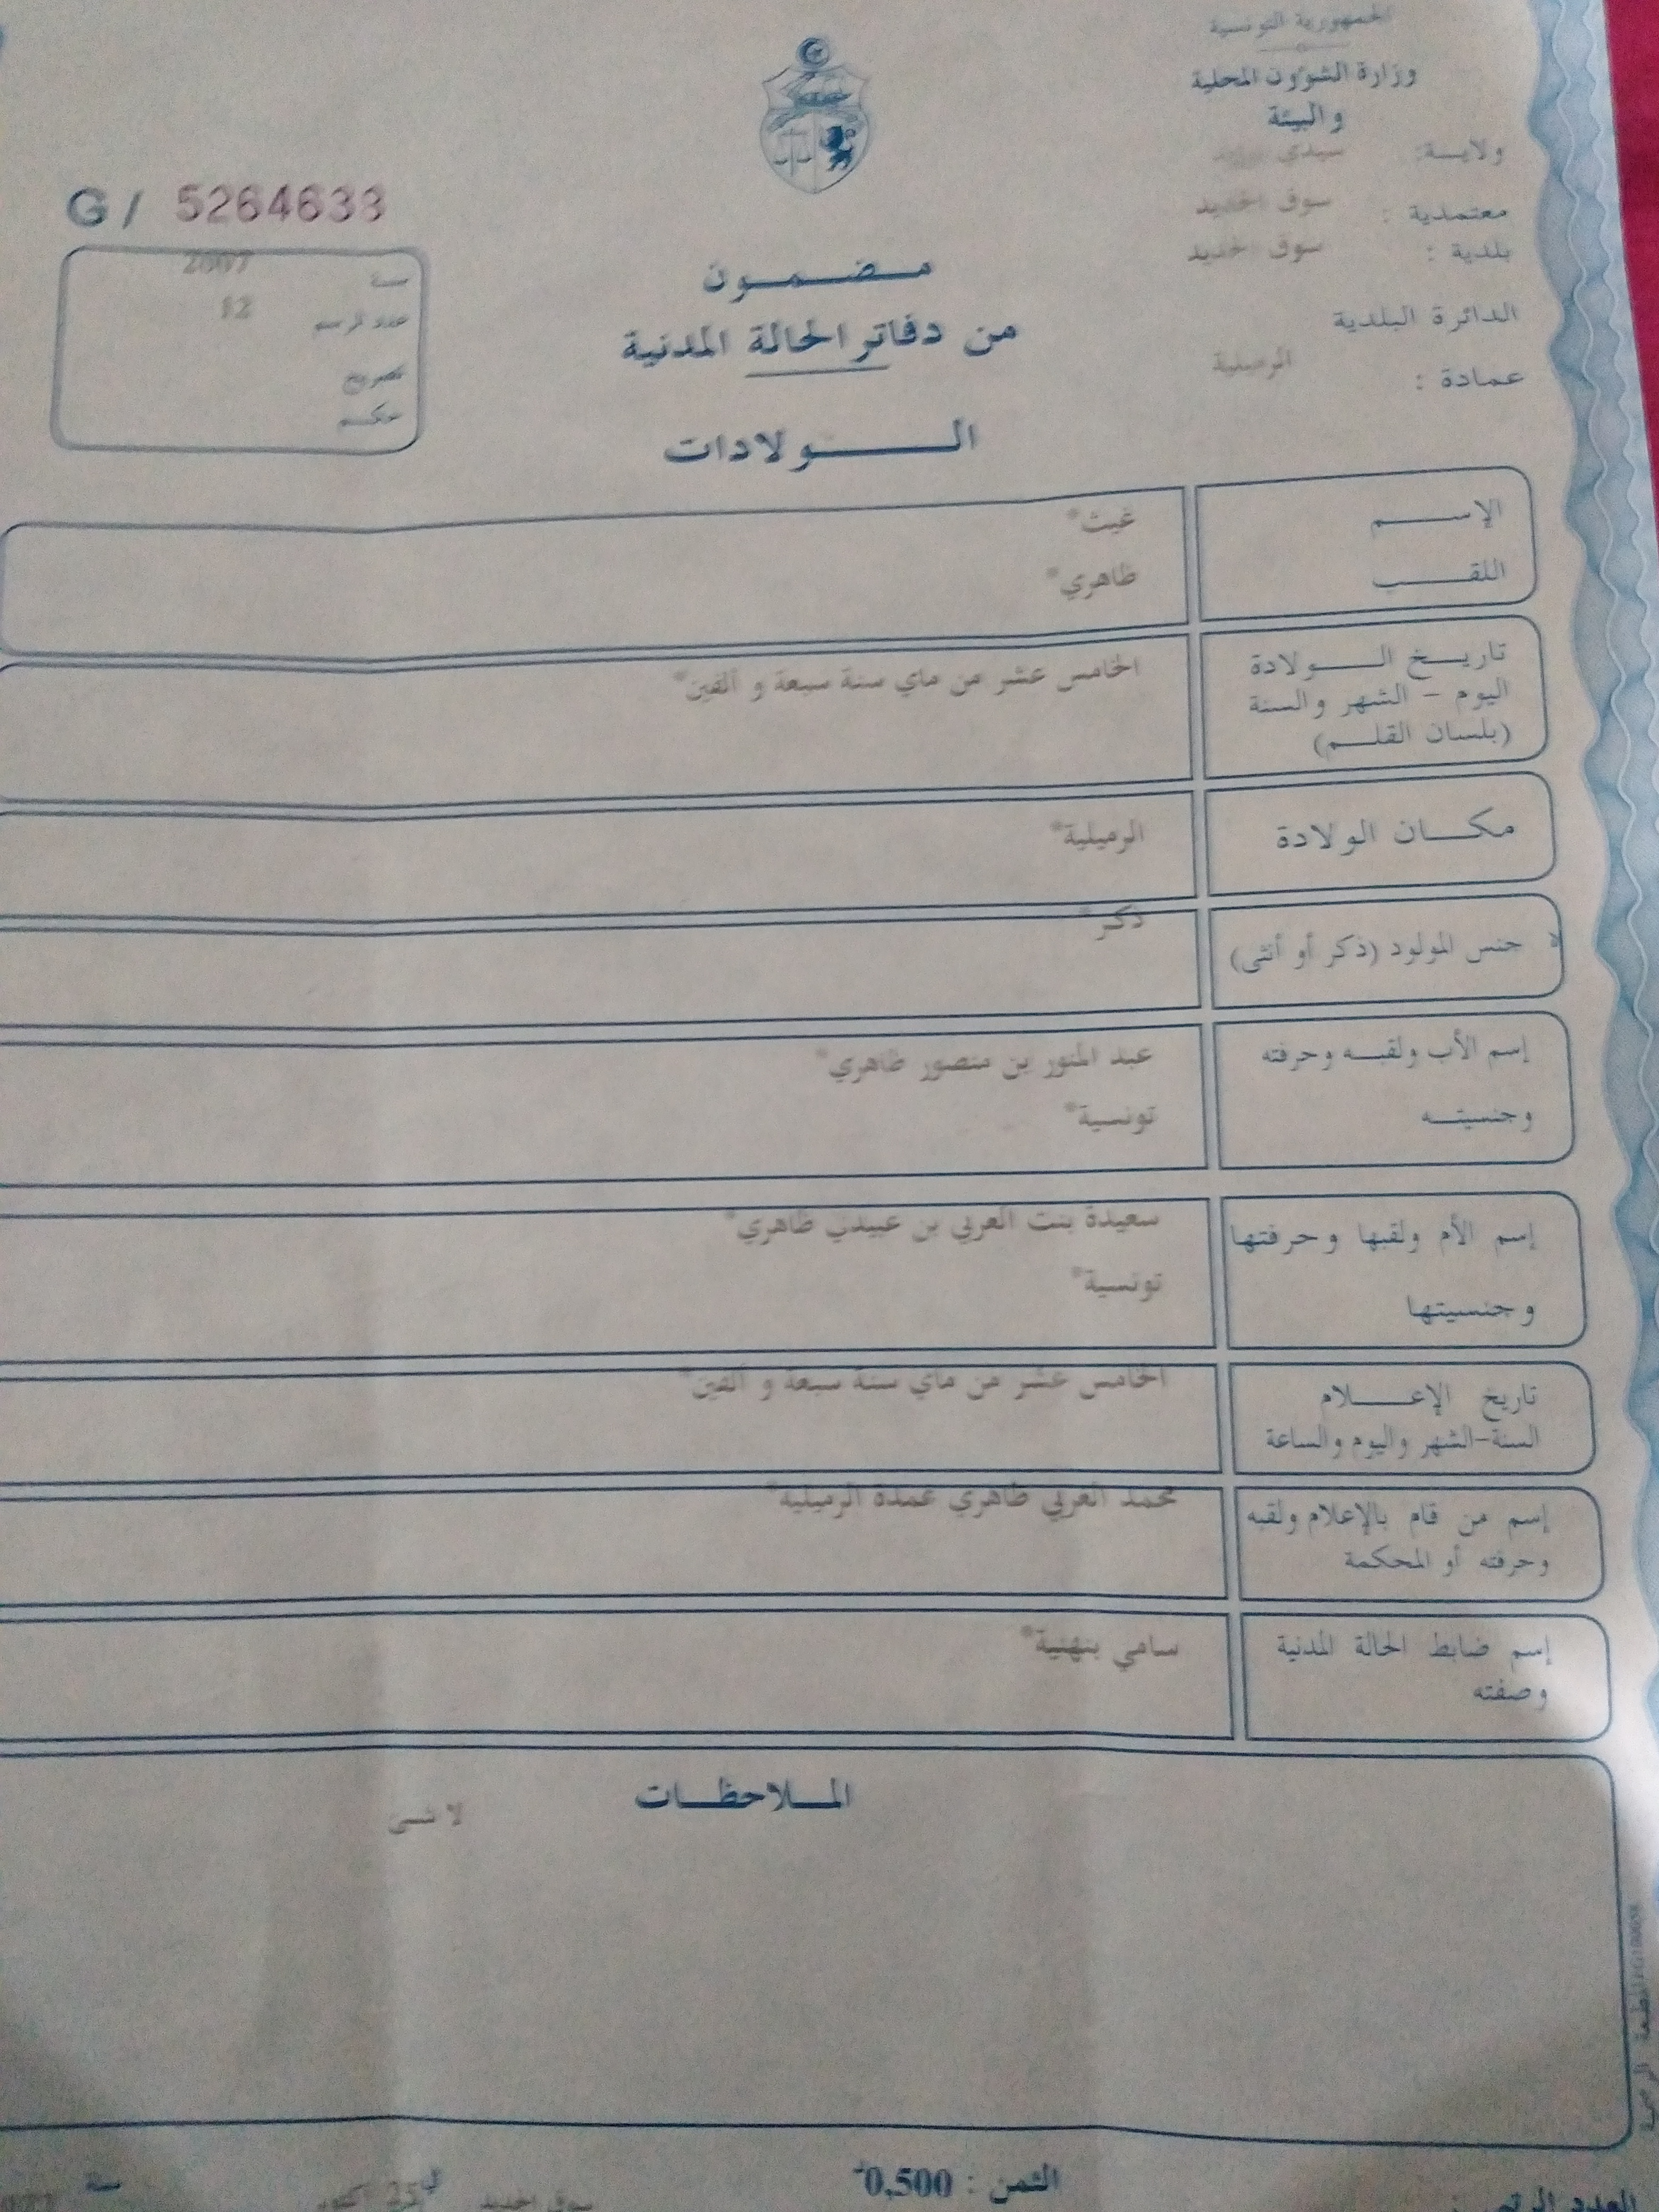 الجمهورية التونسية
وزارة الشؤون المحلية
والبيئة
ولاية: سيدي
معتمدية : سوق الجديد
بلدية : سوق الجديد
الدائرة البلدية
عمادة : الرميلية
G / 5264633
سنة 2007
عدد الرسم 12
تصريح
حكم
مضمون
من دفاتر الحالة المدنية
الولادات
الإسم غيث*
اللقب ظاهري*
تاريخ الولادة الخامس عشر من ماي سنة سبعة و ألفين*
اليوم - الشهر والسنة
(بلسان القلم)
مكان الولادة الرميلية*
جنس المولود (ذكر أو أنثى) ذكر*
إسم الأب ولقبه وحرفته عبد المنور بن منصور ظاهري*
وجنسيته تونسية*
إسم الأم ولقبها وحرفتها سعيدة بنت العربي بن عبيدي ظاهري*
وجنسيتها تونسية*
تاريخ الإعلام الخامس عشر من ماي سنة سبعة و ألفين*
السنة-الشهر واليوم والساعة
إسم من قام بالإعلام ولقبه محمد العربي ظاهري عمدة الرميلية*
وحرفته أو المحكمة
إسم ضابط الحالة المدنية سامي بنهنية*
وصفته
الملاحظات
لا شى
الثمن : 0,500
سوق الجديد في 25 أكتوبر سنة